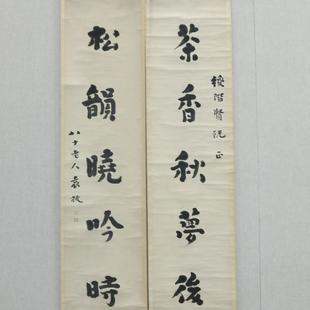 階賢阮 正
茶香秋夢後
松韻曉吟時
八十老人袁枚